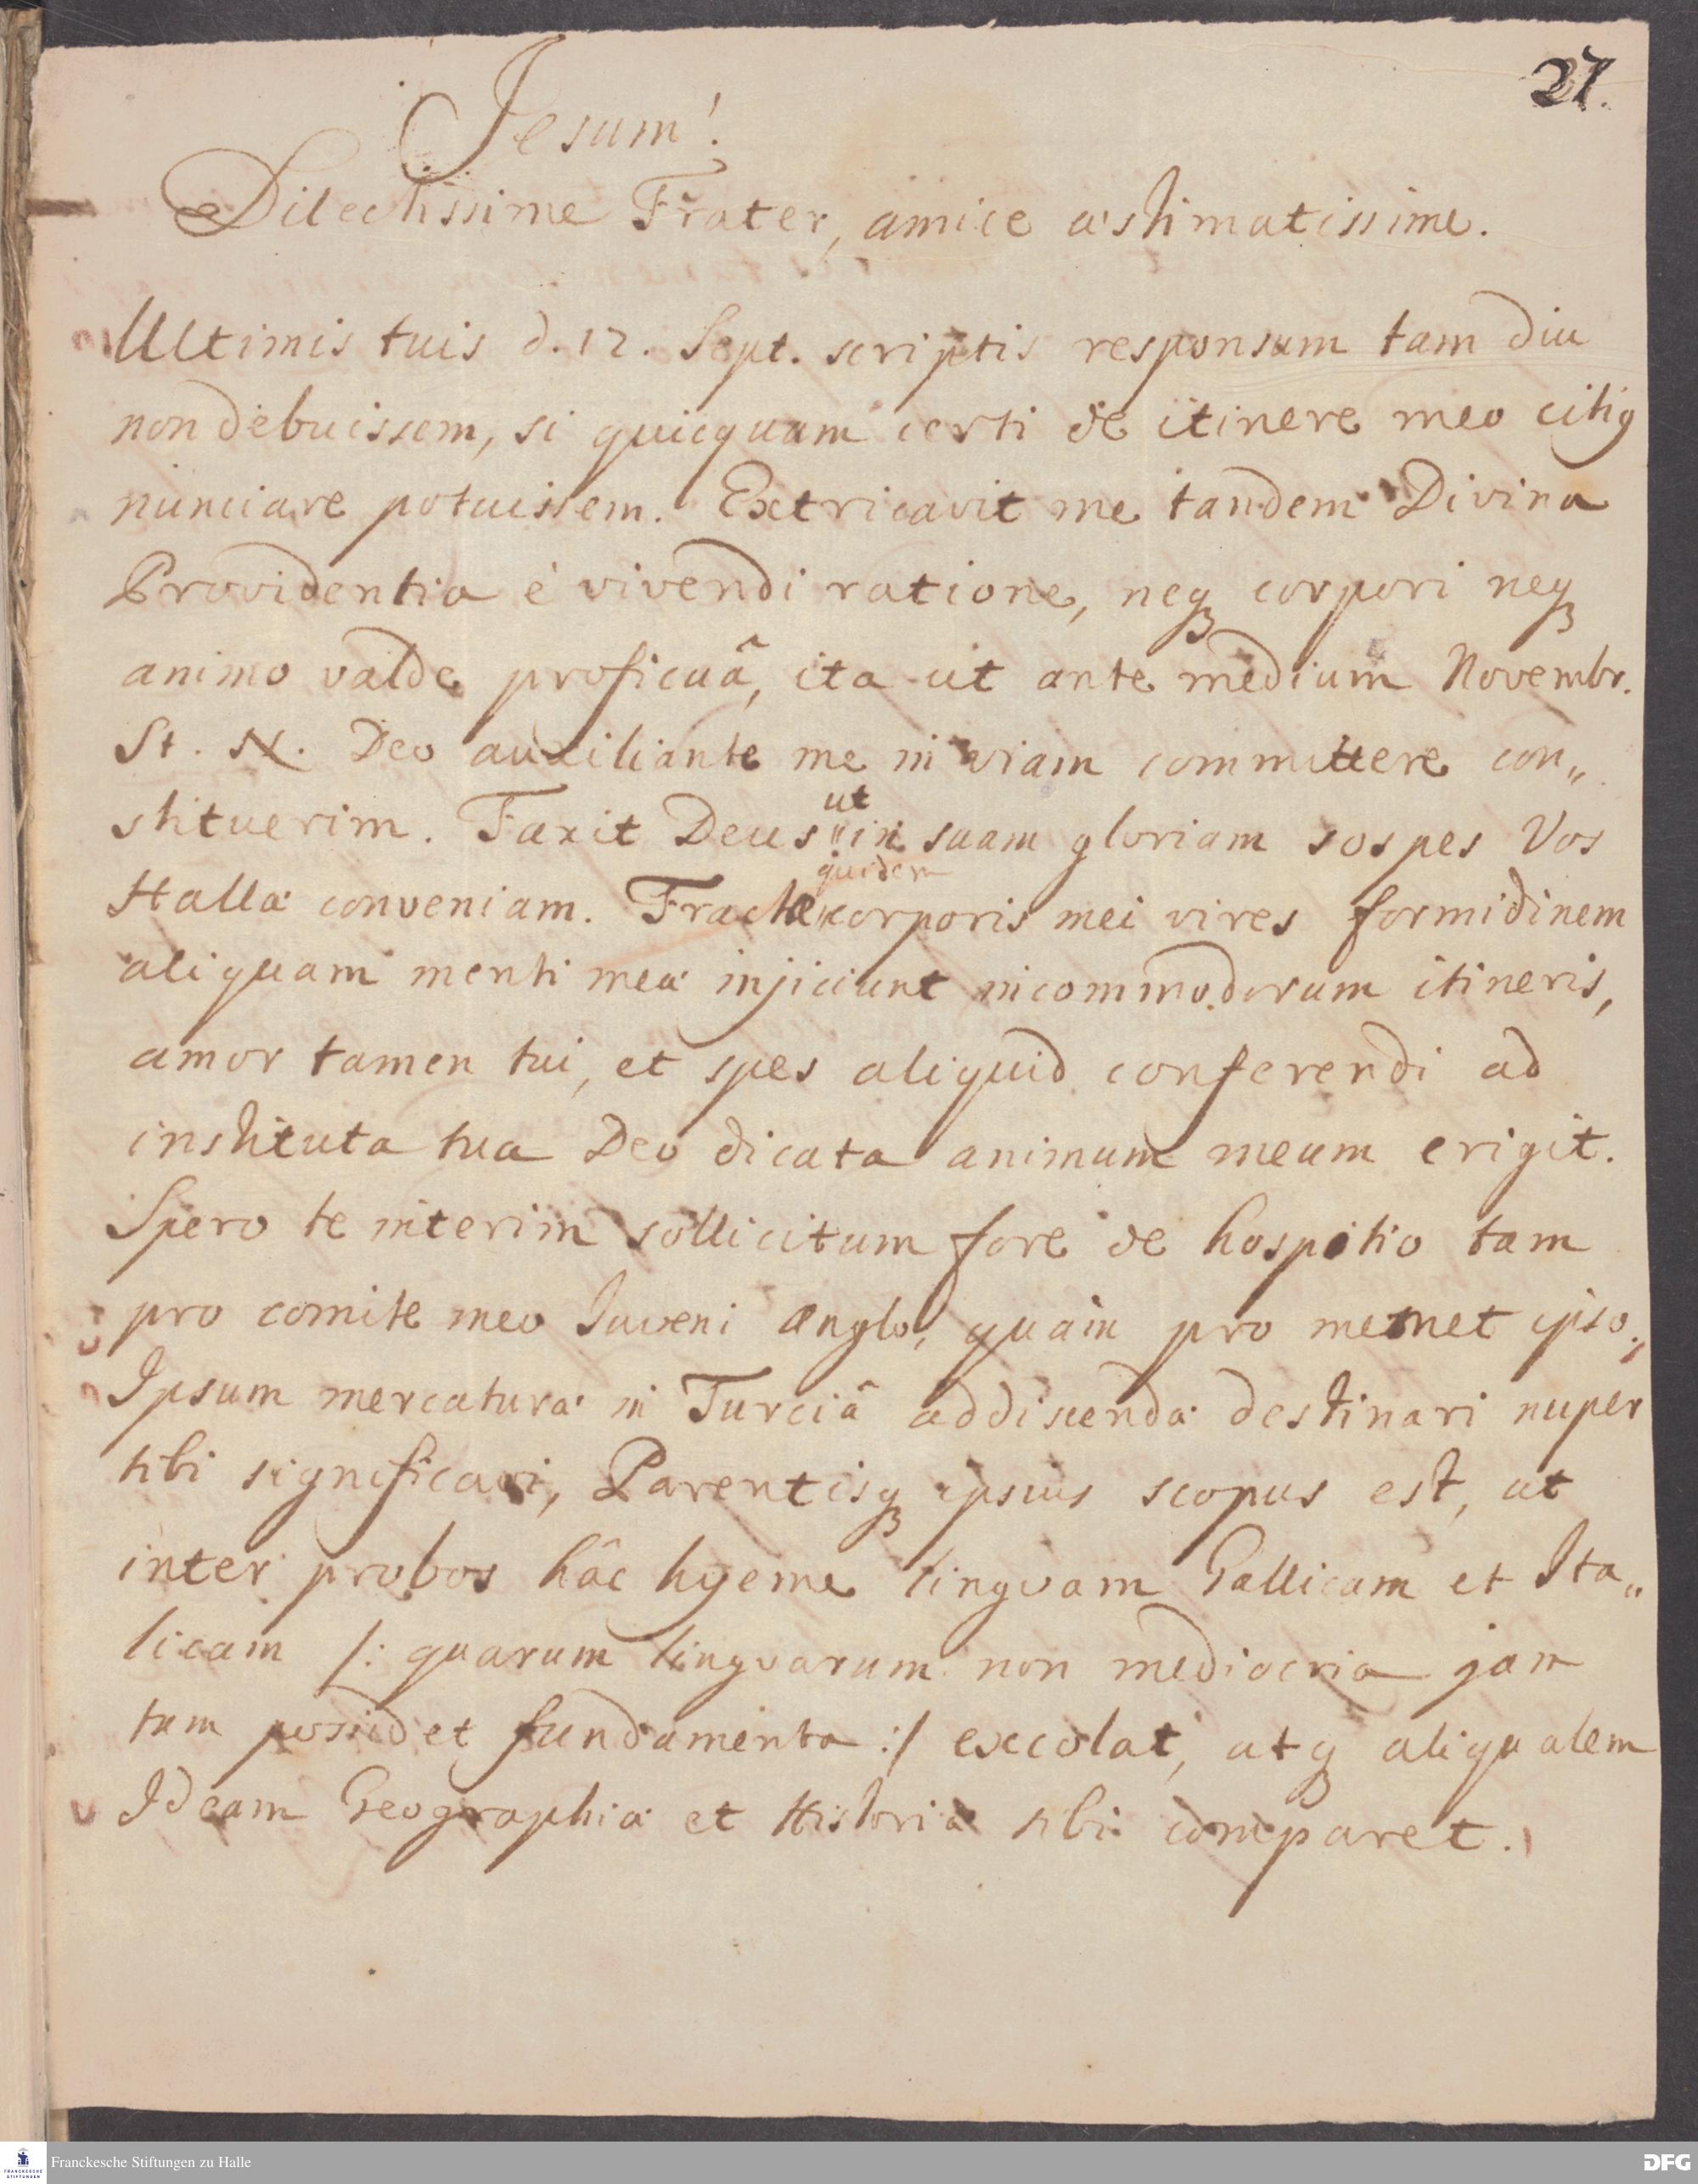 27.
Jesum!
Dilectissime Frater, amice æstimatissime.
Ultimis tuis d. 12. Sept. scriptis responsum tam diu
non debuissem, si quicquam certi de itinere meo citig
nunciare potuissem. Extricavit me tandem Divina
Providentia è vivendi ratione, neqꝫ corpori neqꝫ
animo valde proficuâ, ita ut ante medium Novembr.
St. N. Deo auxiliante me in viam committere con„
stituerim. Faxit Deus ut in suam gloriam sospes Vos
Hallæ conveniam. Fractæ quidem corporis mei vires formidinem
aliquam menti meæ injiciunt incommodorum itineris,
amor tamen tui, et spes aliquid conferendi ad
instituta tua Deo dicata animum meum erigit.
Spero te interim sollicitum fore de hospitio tam
pro comite meo Juveni Anglo, quam pro memet ipso.
Ipsum mercaturæ in Turciâ addiscendæ destinari nuper
tibi significavi, Parentisqꝫ ipsius scopus est, ut
inter probos hâc hyeme linguam Gallicam et Ita„
licam /: quarum linguarum non mediocria jam
tum possidet fundamenta :/ excolat, atqꝫ aliqualem
Ideam Geographiæ et Historiæ sibi comparet.
Franckesche Stiftungen zu Halle
FRANCKESCHE STIFTUNGEN
DFG